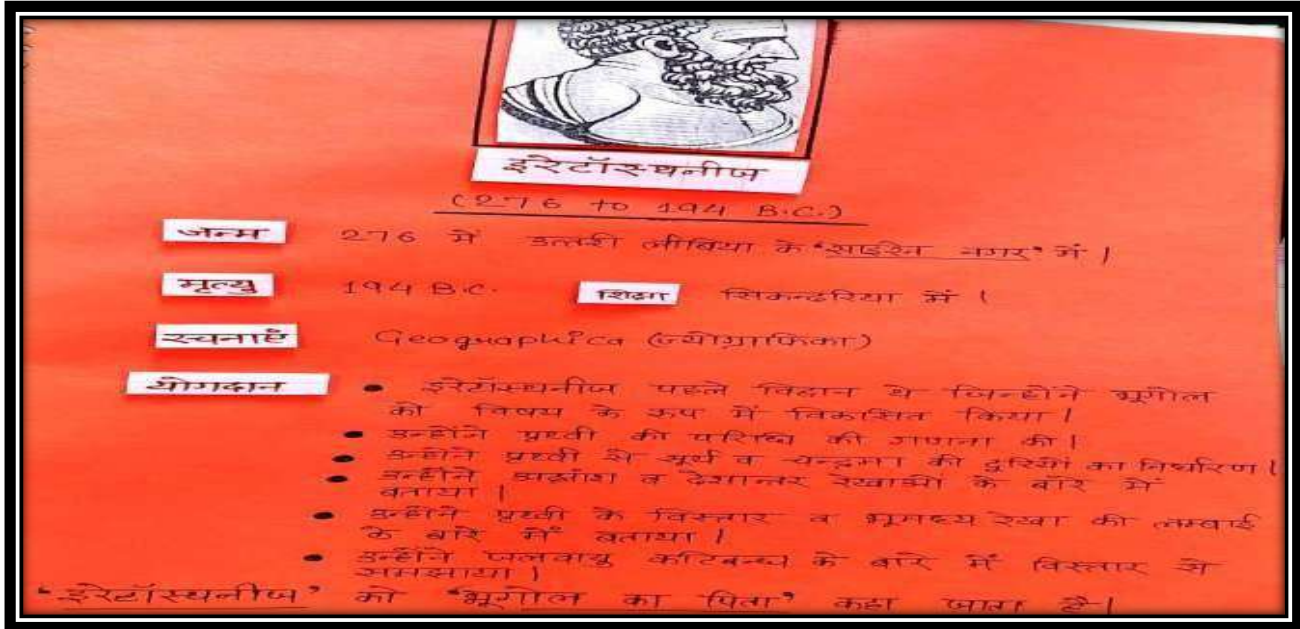 इरेटॉस्थनीज
(276 to 194 B.C.)
जन्म 276 में उत्तरी लीबिया के "साइरेन नगर" में |
मृत्यु 194 B.C. शिक्षा सिकन्दरिया में |
रचनाएँ Geographica (ज्योग्राफिका)
योगदान • इरेटॉस्थनीज पहले विद्वान थे जिन्होंने भूगोल
को विषय के रूप में विकसित किया |
• उन्होंने पृथ्वी की परिधि की गणना की |
• उन्होंने पृथ्वी से सूर्य व चन्द्रमा की दुरियों का निर्धारण |
• उन्होंने अक्षांश व देशान्तर रेखाओं के बारे में
बताया |
• उन्होंने पृथ्वी के विस्तार व भूमध्य रेखा की लम्बाई
के बारे में बताया |
• उन्होंने जलवायु कटिबन्ध के बारे में विस्तार से
समझाया |
"इरेटॉस्थनीज" को "भूगोल का पिता" कहा जाता है |